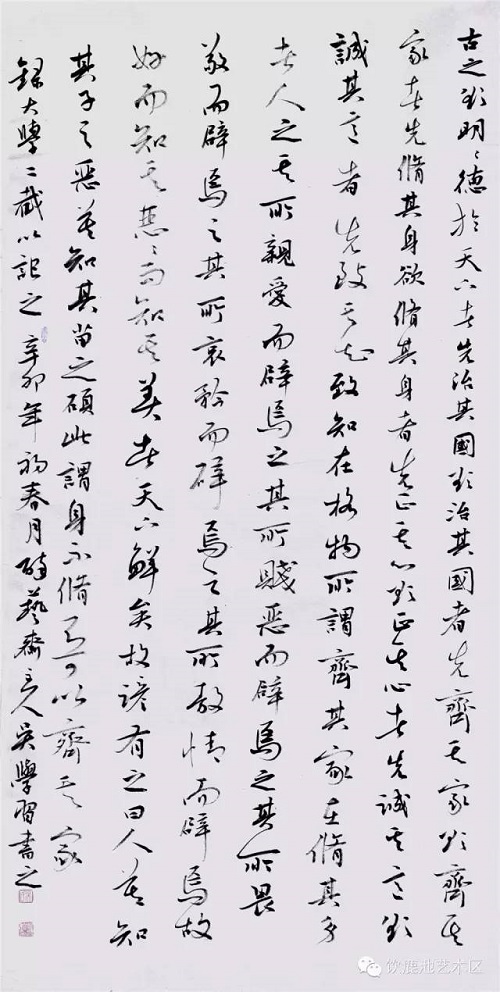 古之欲明々德於天下者先治其國欲治其國者先齊其家欲齊其
家者先脩其身欲脩其身者先正其心欲正其心者先誠其意欲
誠其意者先致其知致知在格物所謂齊其家在脩其身
者人之其所親愛而辟焉之其所賤惡而辟焉之其所畏
敬而辟焉之其所哀矜而辟焉之其所敖惰而辟焉故
好而知其惡惡而知其美者天下鮮矣故諺有之曰人莫知
其子之惡莫知其苗之碩此謂身不脩不可以齊其家
錄大學二截以記之辛卯年初春月 藝齋主人吳學習書之
饮鹿池艺术区